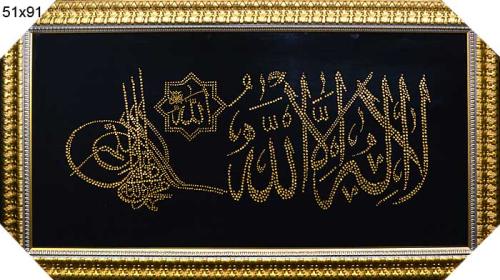 51x91
لا اله الا الله
الله